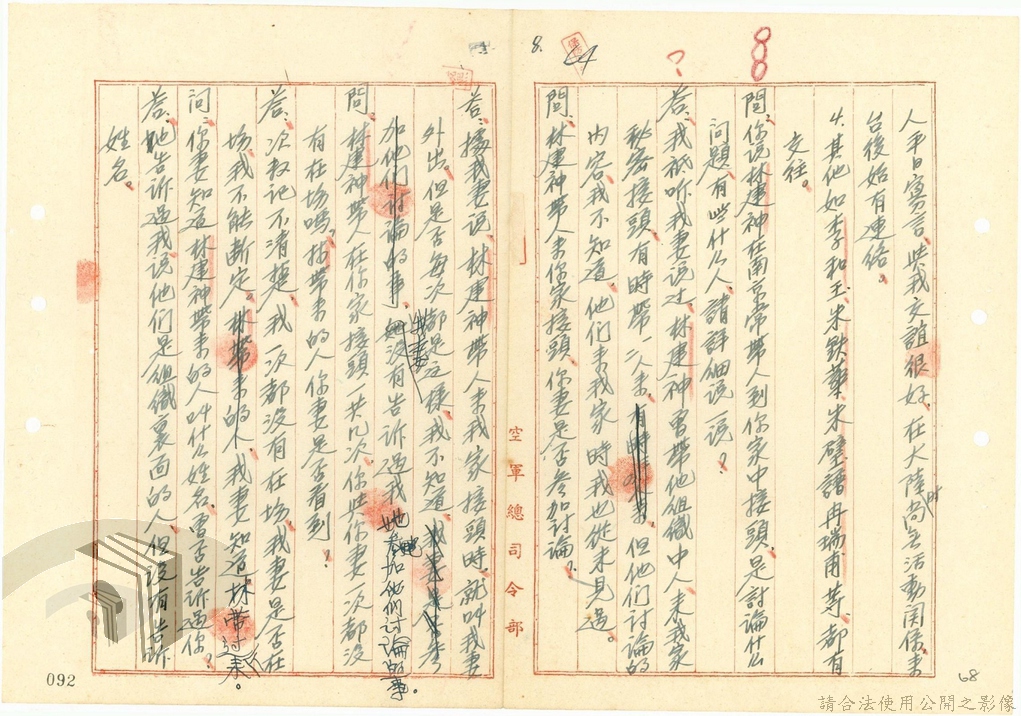 88
8.
人平日寡言、與我交誼很好、在大陸時尚無活動関係、來
台後始有連絡。
4.其他如李和玉、米鉄華、朱璧譜、冉瑞甫等、都有
交往。
問：你说林建神在南京常带人到你家中接頭、是討論什么
問題、有些什么人、請詳细说一说？
答：我祇听我妻说过、林建神曾带他组織中人來我家
秘密接頭、有時带一二人來、但他们討論的
内容、我不知道、他们來我家時我也從未見過。
問：林建神带人來你家接頭、你妻是否参加討論？
空軍總司令部
答：據我妻说、林建神带人來我家接頭時、就叫我妻
外出、但是否每次都是这様、我不知道、我妻
参加他们討論的事、她没有告诉過我
她参加他们討論的事。
問：林建神带人在你家接頭一共几次、你與你妻一次都没
有在场嗎？林带來的人你妻是否看到？
答：次数记不清楚、我一次都没有在场、我妻是否在
场、我不能断定。林带來的人、我妻知道林带过來。
问：你妻知道林建神带來的人叫什么姓名、曾否告诉過你？
答：她告诉過我、说他们是组織裏面的人、但没有告訴
姓名。
092
68
請合法使用公開之影像